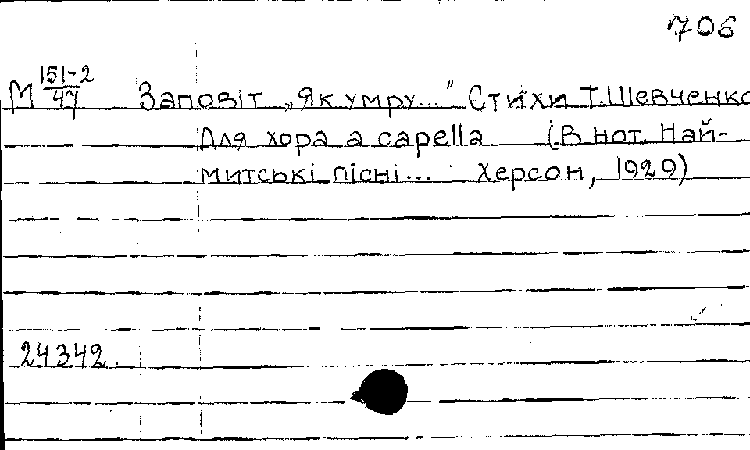 706
М 151-2/47 Заповіт „Як умру..." Стихи Т. Шевченко
Для хора a capella (В нот. Най-
митські пісні... Херсон, 1920)
24342.